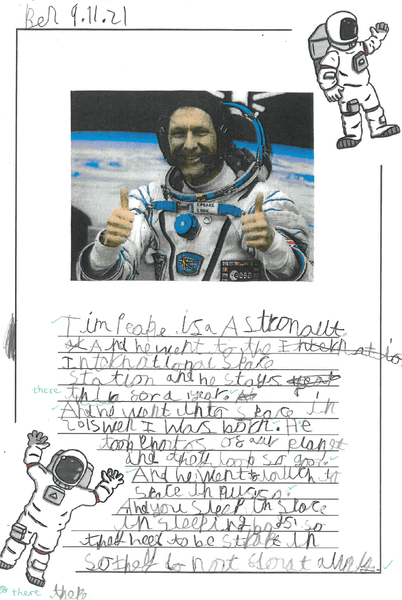 Ben 9.11.21
Tim Peake is a Astronaut.
And he went to the
International Space
Station and he stays
there
this for a year.
And he went into space in
2015 wen I was born. He
took photos of our planet
and they look so good.
And he went to
space in
And you sleep in space
in sleeping bags so
they need to be strapt in
so they do not float
there there